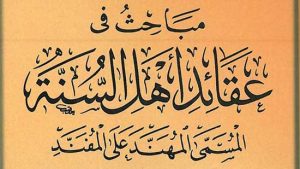 مباحث في
عقائد أهل السنة
المسمى المهند على المفند